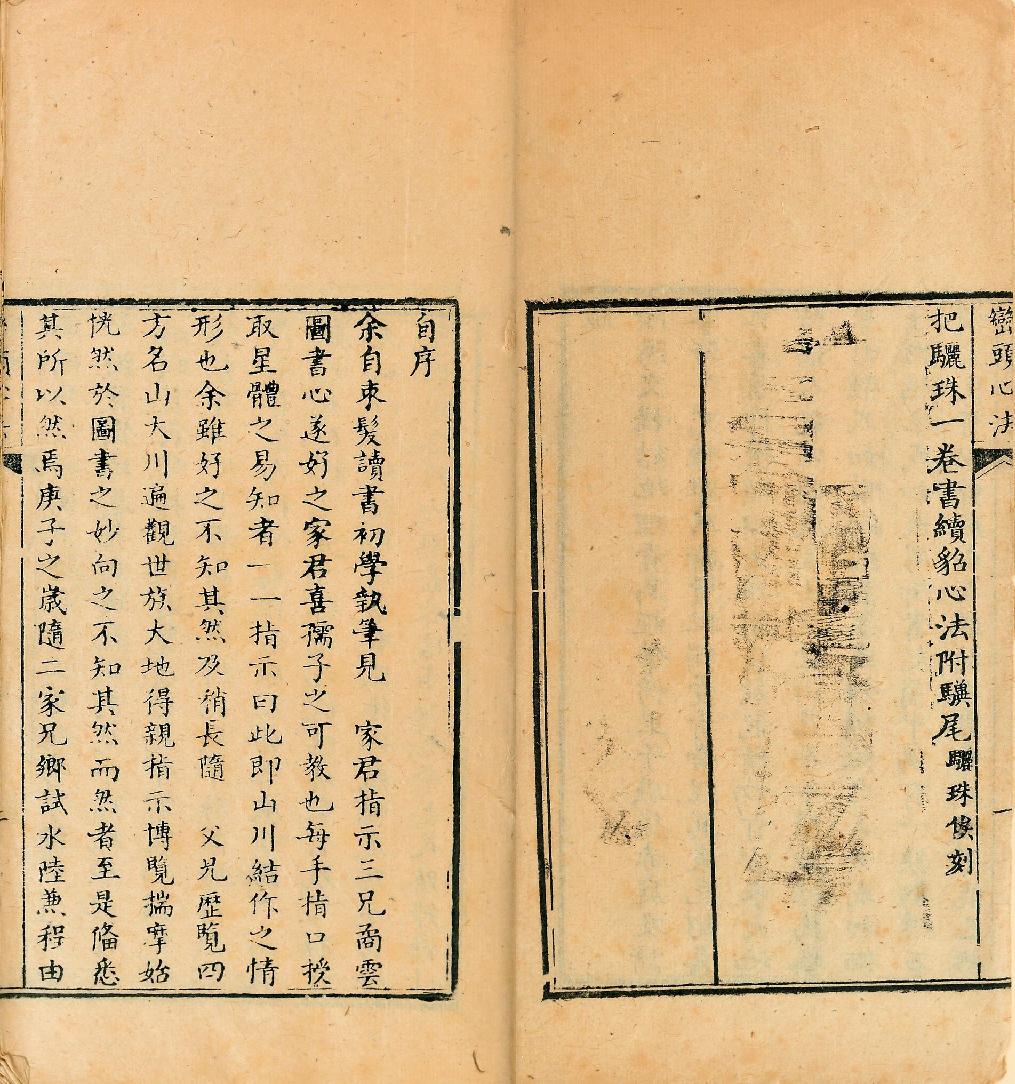 巒頭心法
一
把驪珠一卷書續貂心法附驥尾驪珠俟刻
自序
余自束髮讀書初學執筆見 家君指示三兄啇雲
圖書心遂好之家君喜孺子之可教也每手指口授
取星體之易知者一一指示曰此即山川結作之情
形也余雖好之不知其然及稍長隨 父兄歷覽四
方名山大川遍觀世族大地得親指示博覧揣摩始
恍然於圖書之妙向之不知其然而然者至是俻悉
其所以然焉庚子之歲隨二家兄鄉試水陸兼程由